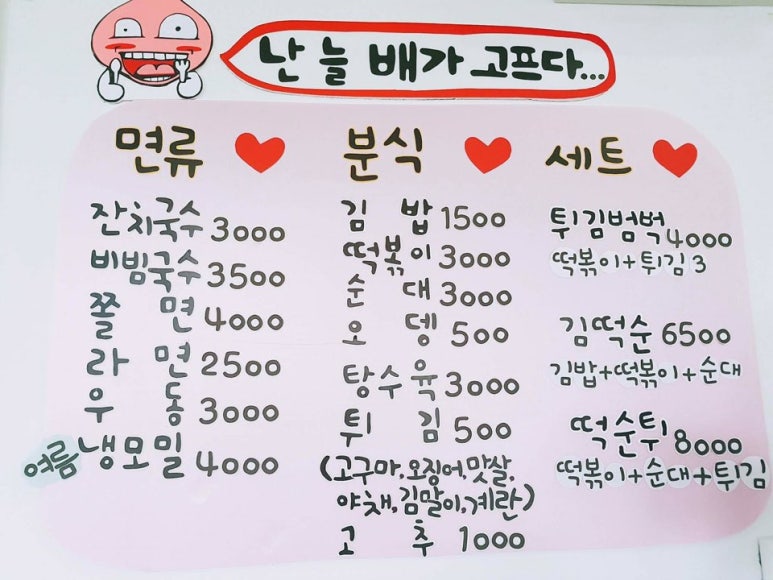 난 늘 배가 고프다...
면류
잔치국수 3000
비빔국수 3500
쫄면 4000
라면 2500
우동 3000
여름 냉모밀 4000
분식
김밥 1500
떡볶이 3000
순대 3000
오뎅 500
탕수육 3000
튀김 500
(고구마,오징어,맛살,
야채,김말이,계란)
고추 1000
세트
튀김범벅 4000
떡볶이+튀김3
김떡순 6500
김밥+떡볶이+순대
떡순튀 8000
떡볶이+순대+튀김